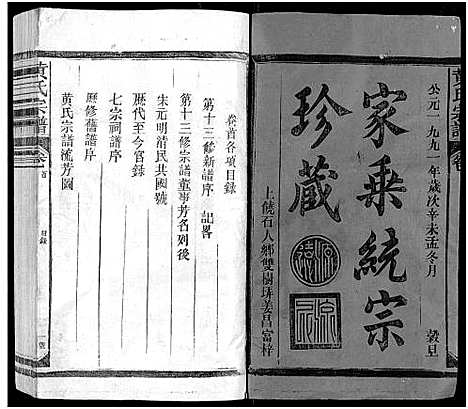 公元一九九一年歲次辛未孟冬月 穀旦
家乘統宗
珍藏
上饒石人鄉雙樹垅姜昌富梓
卷首各項目錄
第十三修新譜序 記畧
第十三修宗譜董事芳名列後
宋元明清民共國號
歷代至今官錄
七宗祠譜序
歷修舊譜序
黄氏宗譜流芳圖
黄氏宗譜 卷首 目錄